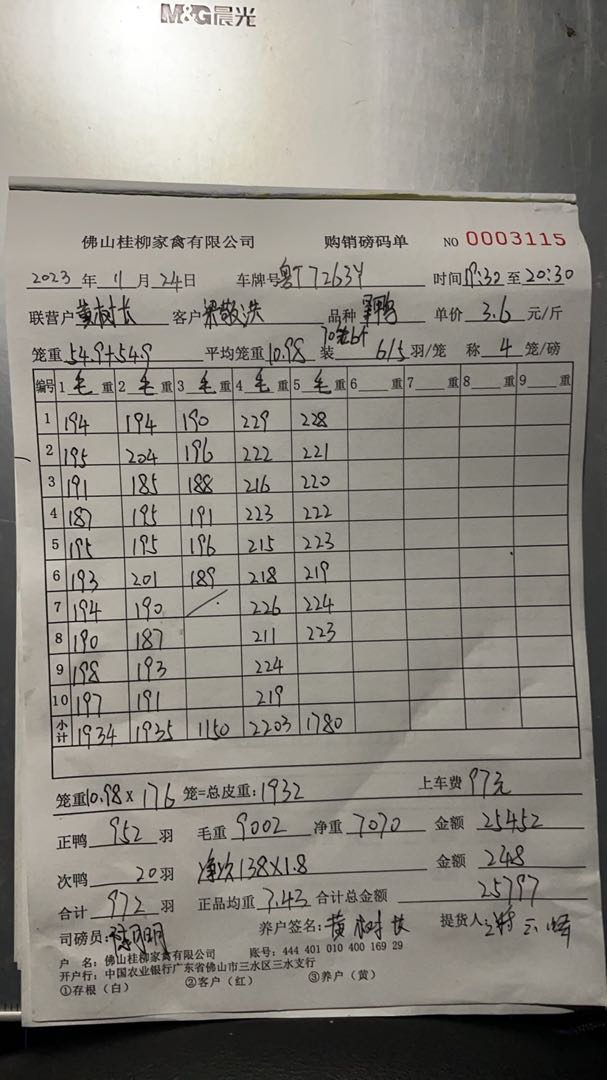 M&G晨光
佛山桂柳家禽有限公司 购销磅码单 NO 0003115
2023 年 11 月 24 日 车牌号 粤T7263Y 时间 19:32 至 20:30
联营户 黄树长 客户 梁敬洪 品种 单价 3.6 元/斤
笼重 54.9+54.9 平均笼重 10.98 装 6/5 羽/笼 称 4 笼/磅
编号 1 毛 重 2 毛 重 3 毛 重 4 毛 重 5 毛 重 6 重 7 重 8 重 9 重
1 194 194 190 229 228
2 195 204 196 222 221
3 191 185 188 216 220
4 187 195 191 223 222
5 195 195 196 215 223
6 193 201 189 218 219
7 194 190 226 224
8 190 187 211 223
9 198 193 224
10 197 191 219
小计 1934 1935 1150 2203 1780
笼重 10.98 × 176 笼=总皮重: 1932 上车费 97元
正鸭 952 羽 毛重 9002 净重 7070 金额 25452
次鸭 20 羽 净次138×1.8 金额 248
合计 972 羽 正品均重 7.43 合计总金额 25797
司磅员: 养户签名: 黄树长 提货人:
户 名: 佛山桂柳家禽有限公司 账号: 444 401 010 400 169 29
开户行: 中国农业银行广东省佛山市三水区三水支行
①存根（白） ②客户（红） ③养户（黄）